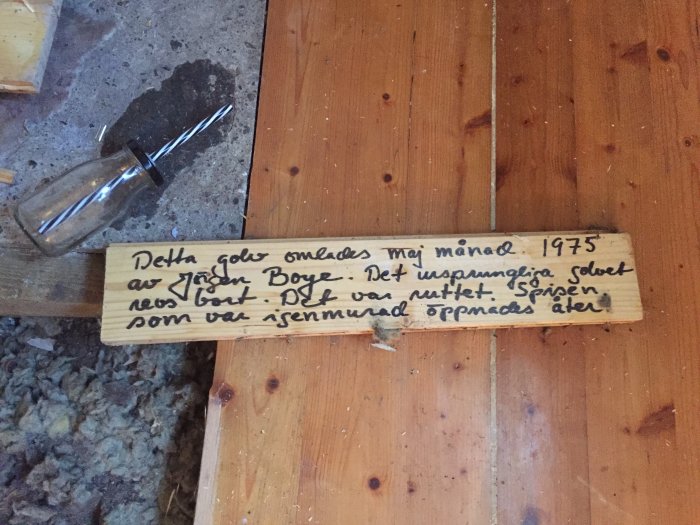 Detta golv omlades maj månad 1975
av Jörgen Boye. Det ursprungliga golvet
revs bort. Det var ruttet. Spisen
som var igenmurad öppnades åter.